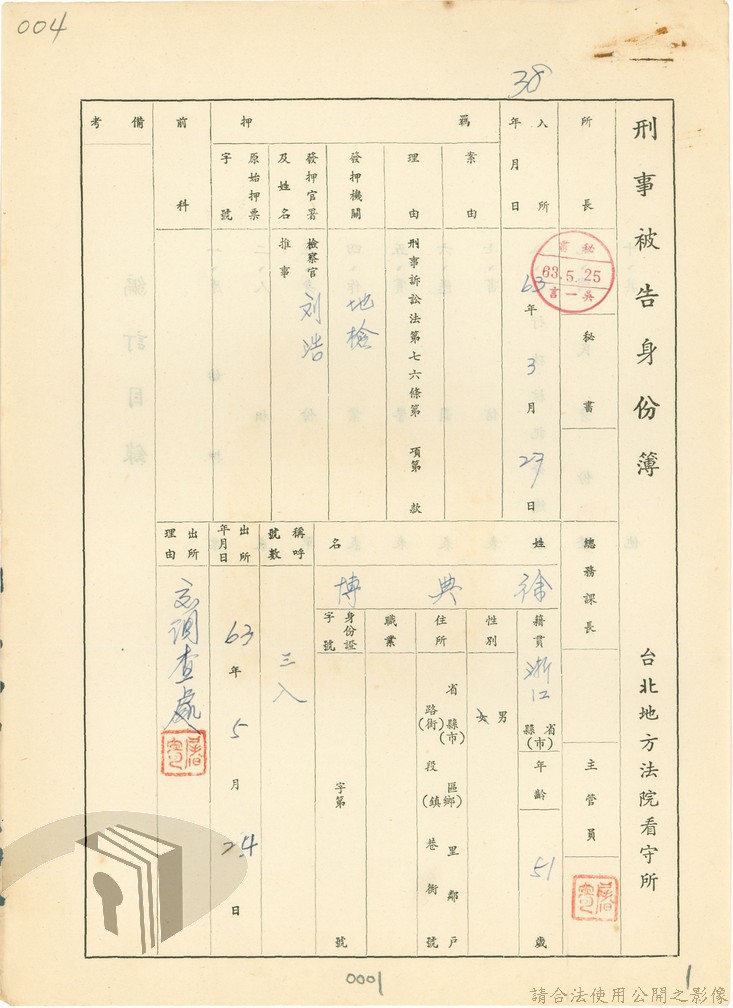 004
38
刑事被告身份簿
台北地方法院看守所
所長
秘書
63.5.25
吳一言
秘書
總務課長
主管員
入所
年月日
63年3月27日
羈押
案由
理由
刑事訴訟法第七六條第 項第 款
發押機關
地檢
發押官署及姓名
檢察官
推事
刘浩
原始押票字號
前科
備考
姓名
徐典博
籍貫
浙江
省
縣(市)
年齡
51歲
性別
男
女
住所
省縣(市)區(鄉鎮)里鄰戶
路(街)段巷衖號
職業
身份證字號
字第 號
稱呼號數
三入
出所
年月日
63年5月24日
出所理由
交調查處
0001
1
請合法使用公開之影像